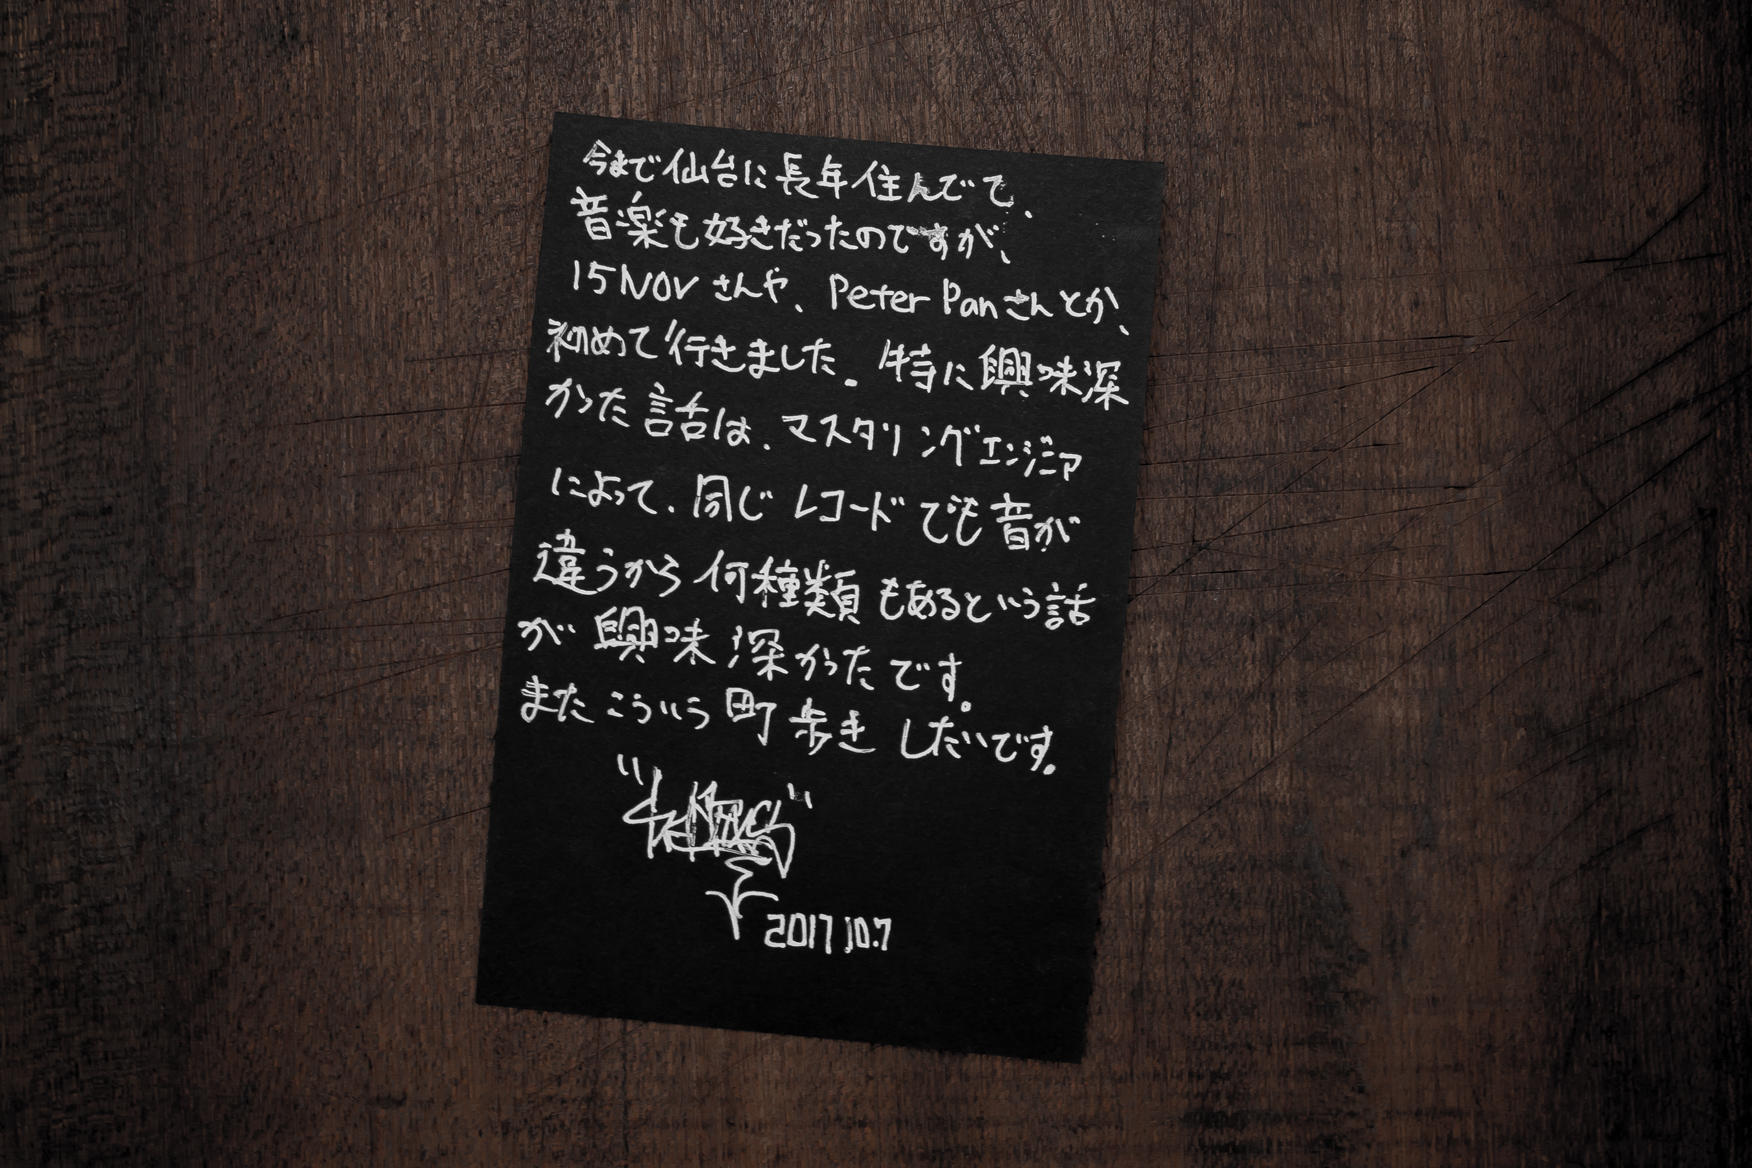 今まで仙台に長年住んでて、
音楽も好きだったのですが、
15NOVさんや、Peter Panさんとか、
初めて行きました。特に興味深
かった話は、マスタリングエンジニア
によって、同じレコードでも音が
違うから何種類もあるという話
が興味深かったです。
またこういう町歩きしたいです。
2017 10.7